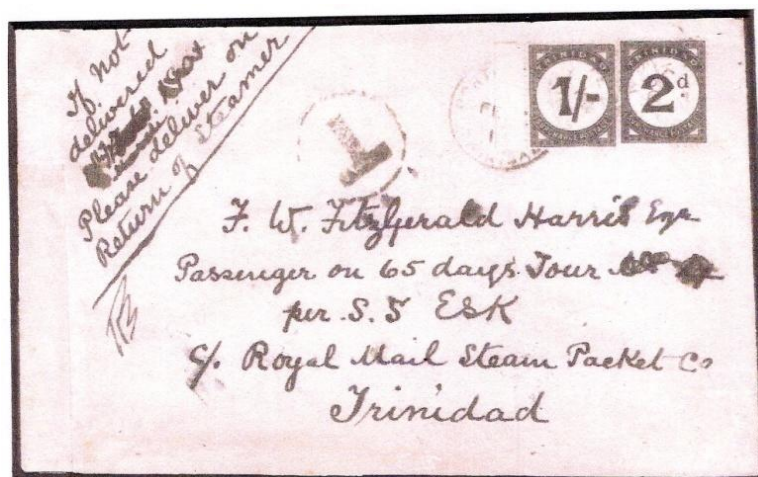 If not
delivered
Please deliver on
Return of Steamer
TRINIDAD
1/-
TRINIDAD
2d
T
F. W. Fitzgerald Harris Eqr
Passenger on 65 days Tour
per S.S ESK
c/. Royal Mail Steam Packet Co
Trinidad